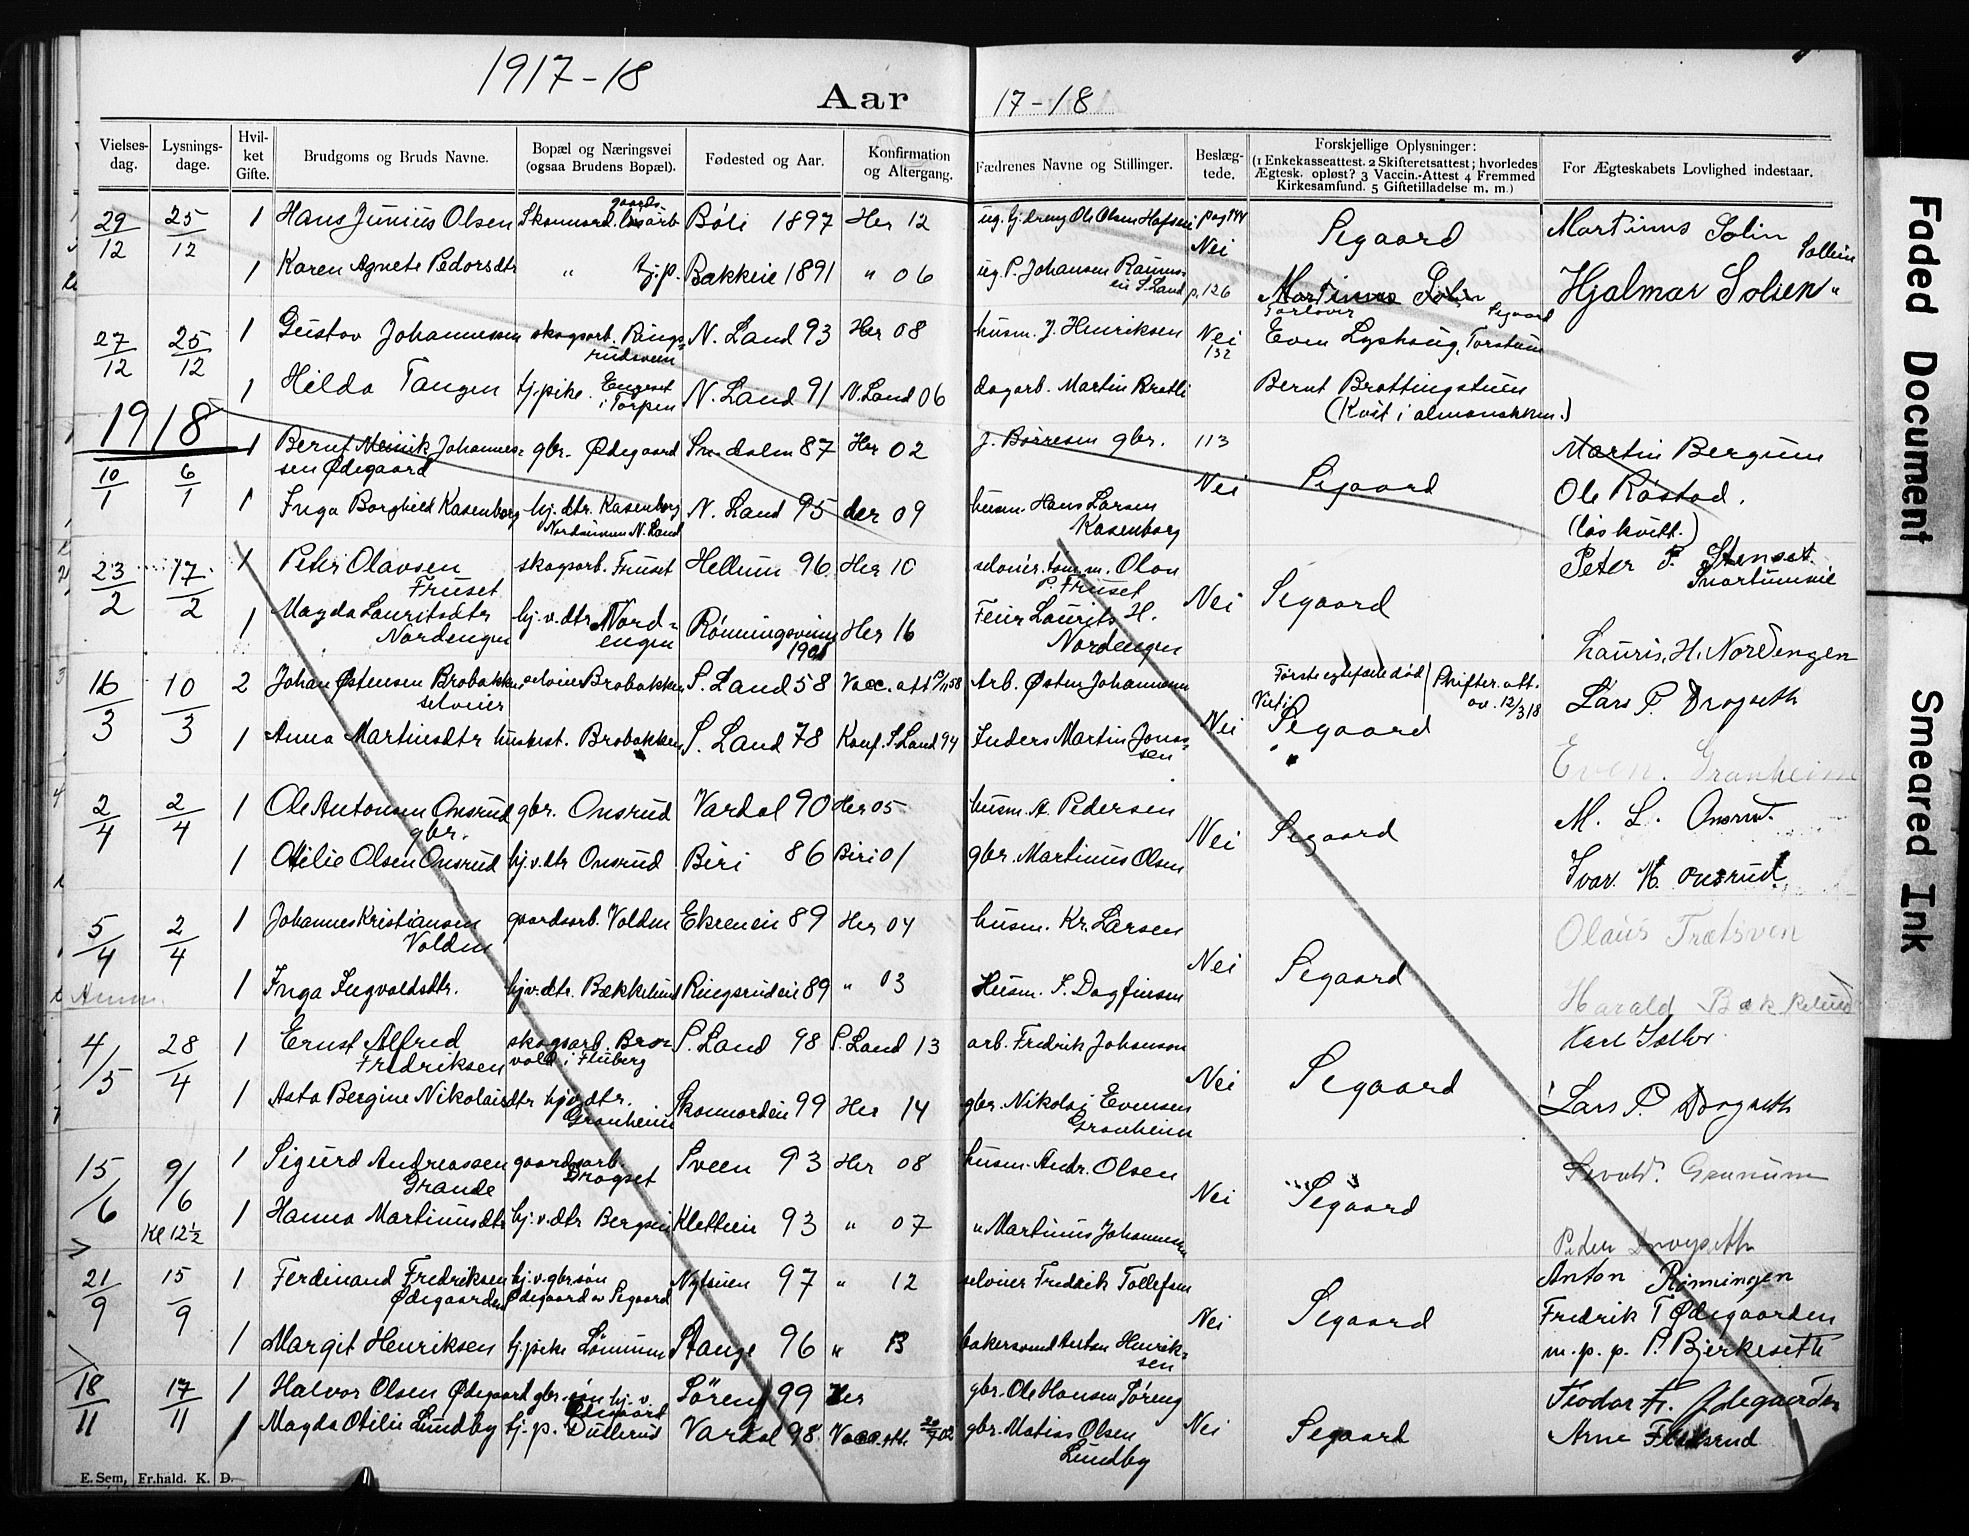 1917-18
Aar
17-18
Vielses-dag. Lysnings-dage. Hvil-ket Gifte. Brudgoms og Bruds Navne. Bopæl og Næringsvei (ogsaa Brudens Bopæl). Fødested og Aar. Konfirmation og Altergang. Fædrenes Navne og Stillinger. Beslæg-tede. Forskjellige Oplysninger: (1 Enkekasseattest. 2 Skifteretsattest; hvorledes Ægtesk. opløst? 3 Vaccin.-Attest 4 Fremmed Kirkesamfund. 5 Giftetilladelse m. m.) For Ægteskabets Lovlighed indestaar.
29/12 25/12 1 Hans Junius Olsen Bóli 1897 Her 12 Segaard Martinus Solin
1 Karen Agnete Pedersdtr " tj.p. Bakkeie 1891 " 06 Nei Hjalmar Solien
27/12 25/12 1 Gustav Johannessen skogsarb. Rings-rudsveen N. Land 93 Her 08 husm. J. Henriksen Nei 132 Forlover Even Lyshaug, Torstuen
1 Hilda Tangen tj.pike. Engeset i Torpen N. Land 91 N. Land 06 dagarb. Martin Bratli Bernt Brattingstuen
1918
10/1 6/1 1 Bernt Johannes-sen Ødegaard gbr. Ødegaard 87 Her 02 J. Børresen gbr. 113 Nei Segaard Martin Bergum
1 Inga Borghild Kasenborg hj. dtr. Kasenborg Nordsinnen N. Land N. Land 95 der 09 husm. Hans Larsen Kasenborg Ole Røstad.
23/2 17/2 1 Peter Olavsen Fruset skogsarb. Fruset Hellum 96 Her 10 selveier. tøm.m. Olav P. Fruset Nei Segaard Peter P. Stenset
1 Magda Lauritsdtr Nordengen hj.v.dtr Nord-engen 1901 Her 16 Feier Laurits H. Nordengen Lauris. H. Nordengen
16/3 10/3 2 Johan Østensen Brobakken selveier selveier Brobakken S. Land 58 Vacc. att Arb. Østen Johannesen Nei Segaard Skifter.att. av. 12/3 18 Lars P. Drogseth
1 Anna Martinsdtr husbest. Brobakken S. Land 78 Konf. S. Land 94 Inders Martin Jons-sen Even. Granheim
2/4 2/4 1 Ole Antonsen Onsrud gbr. gbr. Onsrud Vardal 90 Her 05 husm. A. Pedersen Nei Segaard M. L. Onsrud.
1 Otilie Olsen Onsrud hj.v.dtr Onsrud Biri 86 Biri 01 gbr. Martinus Olsen Ivar. M. Onsrud.
5/4 2/4 1 Johannes Kristiansen Volden gaardsarb. Volden Ekreneie 89 Her 04 husm. Kr. Larsen Nei Segaard Olaus Trætsven
1 Inga Ingvaldsdtr. hj.v.dtr. Bækkelund Ringsrudeie 89 " 03 Husm. I. Dagfinsen Harald Bækkelund
4/5 28/4 1 Ernst Alfred Fredriksen skogsarb. Bro-vold i Fluberg S. Land 98 S. Land 13 arb. Fredrik Johanson Nei Segaard Karl Sæther
1 Asta Bergine Nikolaisdtr hj.v.dtr. Granheim Skonnordeie 99 Her 14 gbr. Nikolai Evensen Granheim Lars P. Drogseth
15/6 9/6 Kl 12½ 1 Sigurd Andreassen Grande gaardsarb. Drogset Sveen 93 Her 08 husm. Andr. Olsen Nei Segaard
1 Hanna Martinusdtr hj.v.dtr Bergsein Kletteie 93 " 07 " Martinus Johannesen Peder Drogseth
21/9 15/9 1 Ferdinand Fredriksen Ødegaarden hj.v.gbr.søn Ødegaard av Segaard 97 " 12 selveier Fredrik Tollefsen Nei Segaard Anton Rønningen
Fredrik T Ødegaarden
1 Margit Henriksen tj.pike Lønnum Stange 96 " 13 bakersvend Anton Henrik-sen m.p.p. P. Bjerkeseth
18/11 17/11 1 Halvor Olsen Ødegaard gbr.søn hj.v. Ødegaard Søreng 99 Her gbr. Ole Hansen Søreng Nei Segaard Teodor Fr. Ødegaarden
1 Magda Otilie Lundby tj.p. Dullerud Vardal 98 Vacc.att. gbr. Matias Olsen Lundby Arne
E. Sem, Fr.hald. K. D.
Faded Document
Smeared Ink